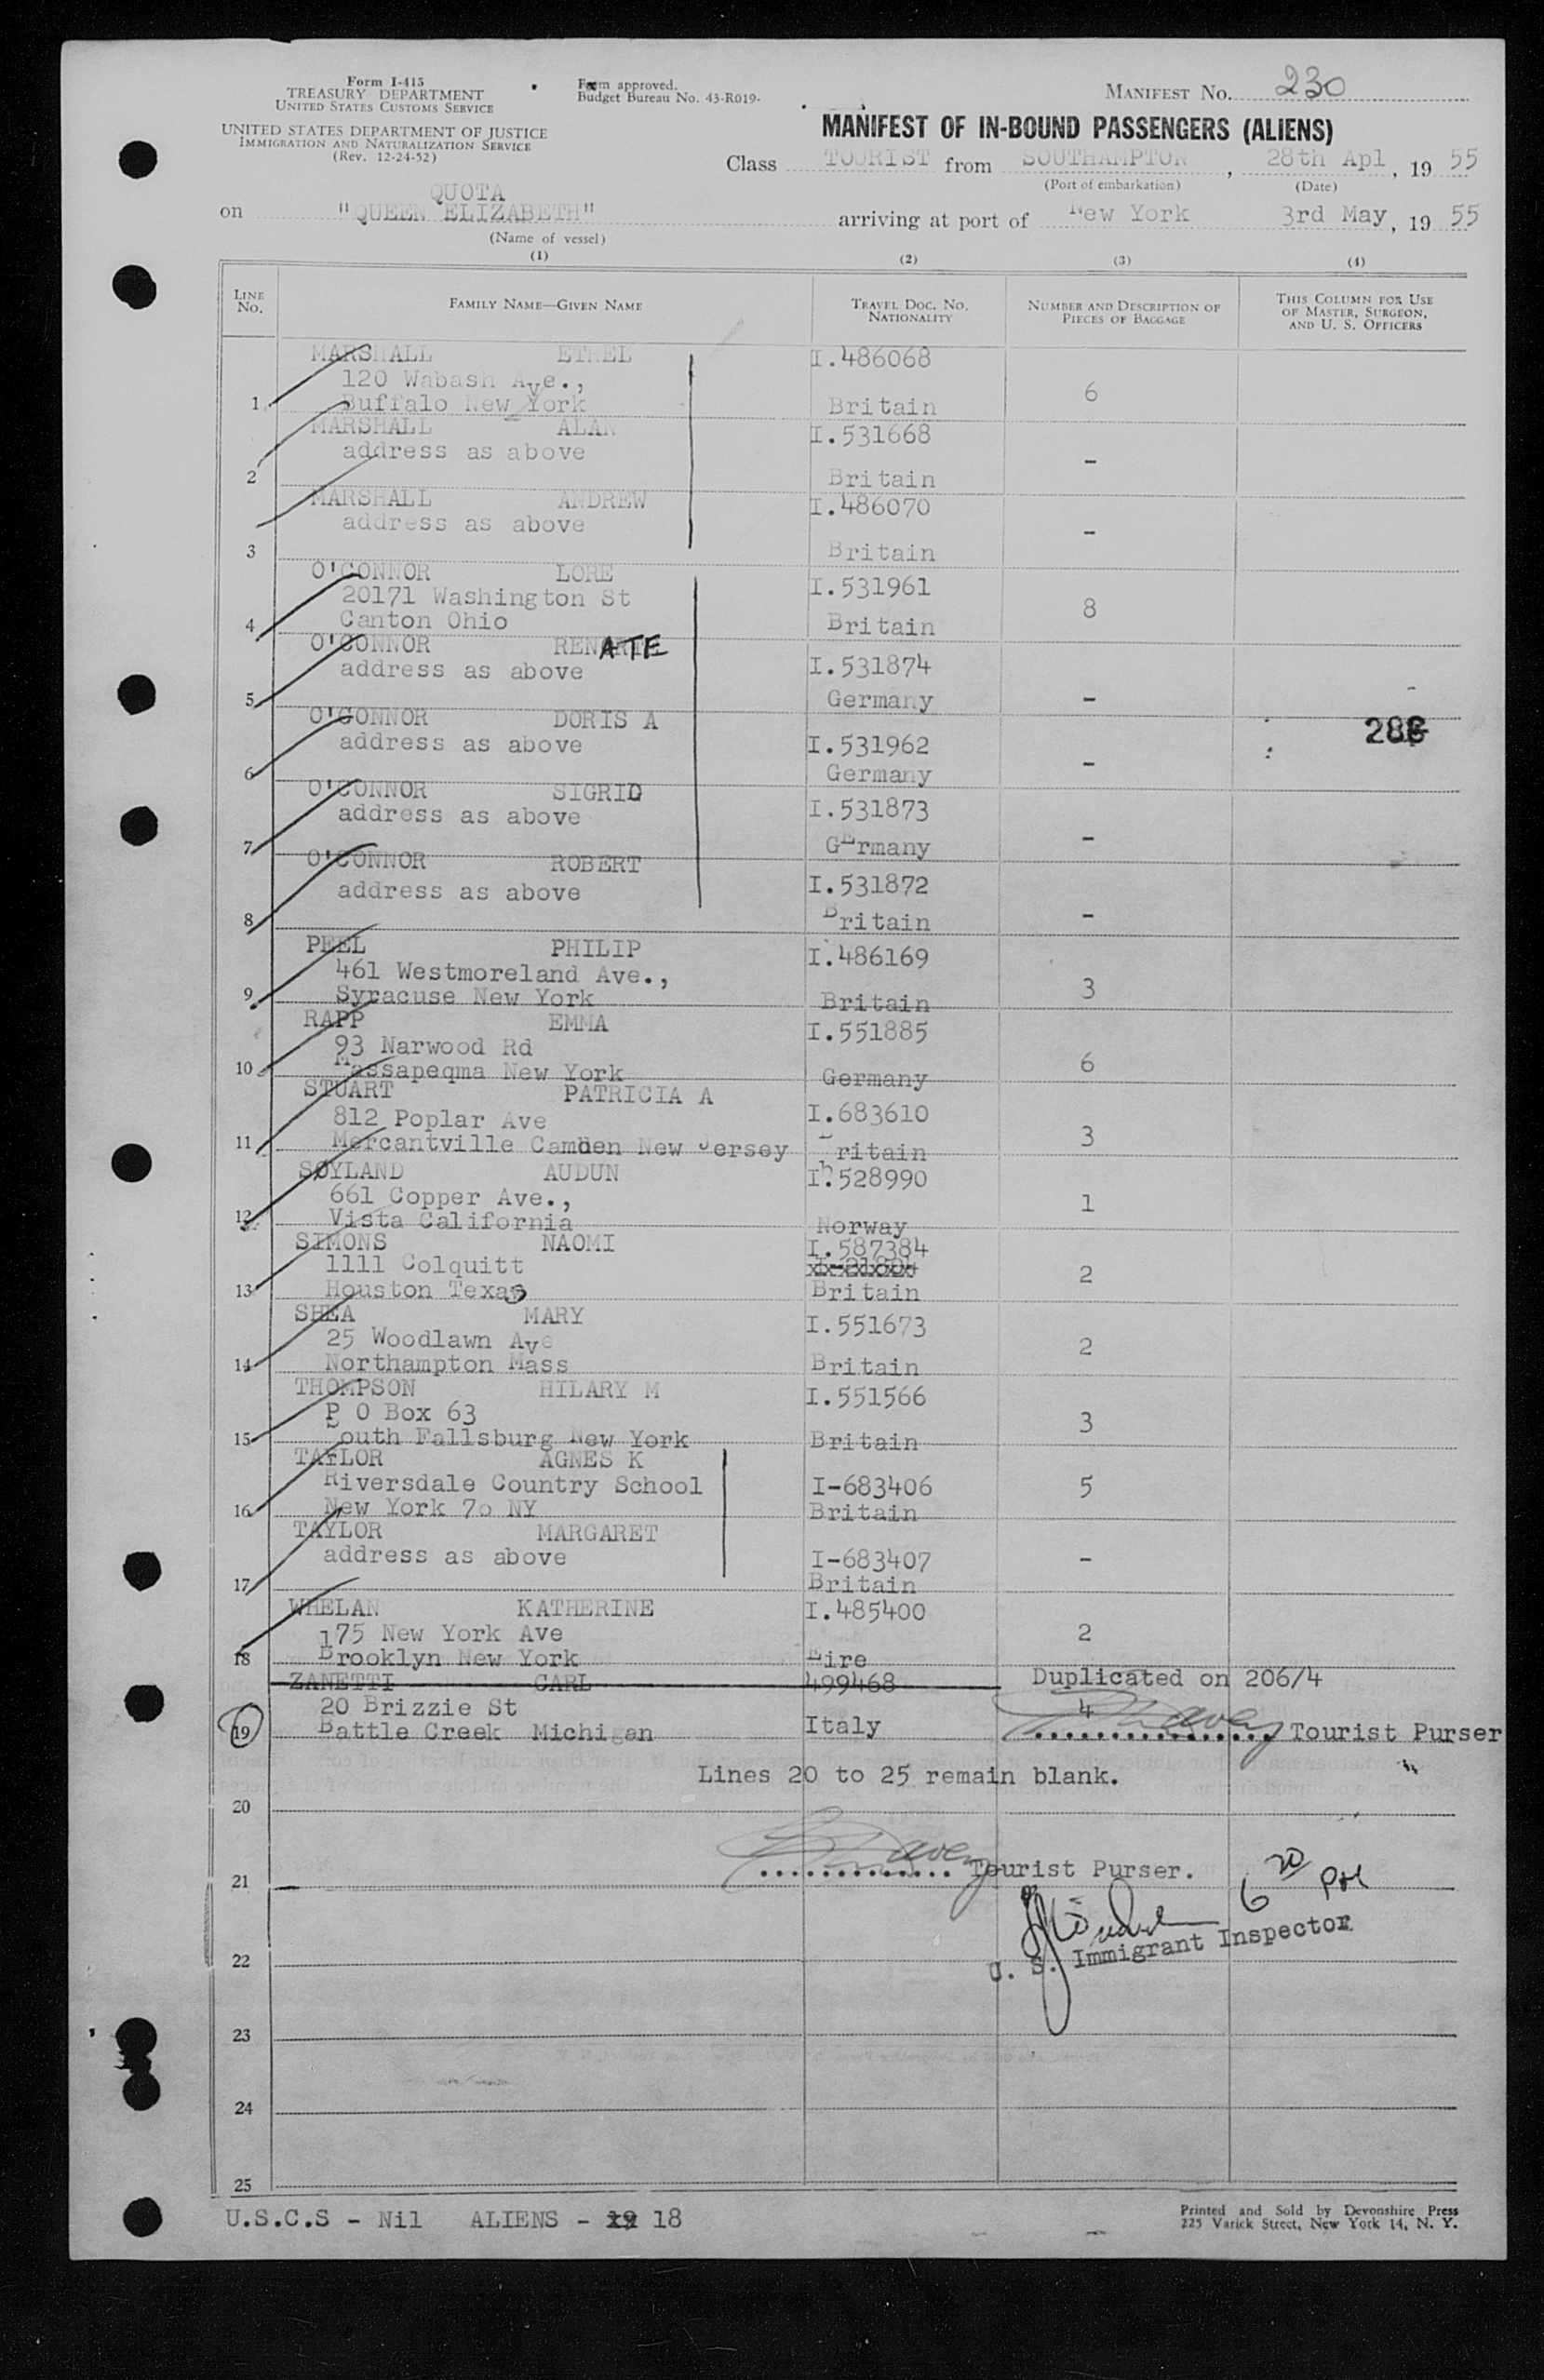 Form I-415
TREASURY DEPARTMENT
UNITED STATES CUSTOMS SERVICE
UNITED STATES DEPARTMENT OF JUSTICE
IMMIGRATION AND NATURALIZATION SERVICE
(Rev. 12-24-52)
Form approved.
Budget Bureau No. 43-R019-
MANIFEST No. 230
MANIFEST OF IN-BOUND PASSENGERS (ALIENS)
Class TOURIST from SOUTHAMPTON, 28th Apl, 19 55
(Port of embarkation) (Date)
QUOTA
on "QUEEN ELIZABETH" arriving at port of New York 3rd May, 19 55
(Name of vessel)
(1) (2) (3) (4)
LINE No. FAMILY NAME—GIVEN NAME TRAVEL DOC. No. NATIONALITY NUMBER AND DESCRIPTION OF PIECES OF BAGGAGE THIS COLUMN FOR USE OF MASTER, SURGEON, AND U. S. OFFICERS
MARSHALL ETHEL I.486068
120 Wabash Ave., 6
1 Buffalo New York Britain
MARSHALL ALAN I.531668
address as above -
2 Britain
MARSHALL ANDREW I.486070
address as above -
3 Britain
O'CONNOR LORE I.531961
20171 Washington St 8
4 Canton Ohio Britain
O'CONNOR RENATE I.531874
address as above
5 Germany -
O'CONNOR DORIS A 286
address as above I.531962
6 Germany -
O'CONNOR SIGRID I.531873
address as above
7 Germany -
O'CONNOR ROBERT I.531872
address as above
8 Britain -
PEEL PHILIP I.486169
461 Westmoreland Ave., 3
9 Syracuse New York Britain
RAPP EMMA I.551885
93 Narwood Rd 6
10 Massapeqma New York Germany
STUART PATRICIA A I.683610
812 Poplar Ave 3
11 Mercantville Camden New Jersey Britain
SØYLAND AUDUN I.528990
661 Copper Ave., 1
12 Vista California Norway
SIMONS NAOMI I.587384
1111 Colquitt 2
13 Houston Texas Britain
SHEA MARY I.551673
25 Woodlawn Ave 2
14 Northampton Mass Britain
THOMPSON HILARY M I.551566
P O Box 63 3
15 South Fallsburg New York Britain
TAYLOR AGNES K
Riversdale Country School I-683406 5
16 New York 70 NY Britain
TAYLOR MARGARET
address as above I-683407 -
17 Britain
WHELAN KATHERINE I.485400
175 New York Ave 2
18 Brooklyn New York Eire
ZANETTI CARL 499468 Duplicated on 206/4
20 Brizzie St 4
19 Battle Creek Michigan Italy Davey Tourist Purser
Lines 20 to 25 remain blank.
20
Davey Tourist Purser.
21
6 20 PM
U. S. Immigrant Inspector
22
23
24
25
U.S.C.S - Nil ALIENS - 19 18
Printed and Sold by Devonshire Press
225 Varick Street, New York 14, N. Y.